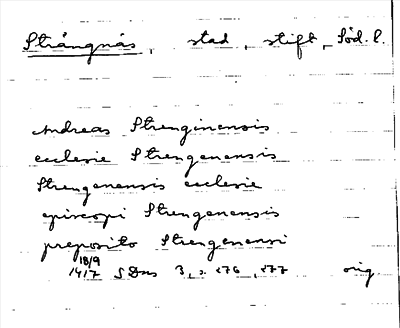 Strängnäs, stad, stift, Söd. l.
Andreas Strenginensis
ecclesie Strengenensis
Strengenensis ecclesie
episcopi Strengenensis
preposito Strengenensi
18/9
1417 SDns 3, s. 276, 277 orig.